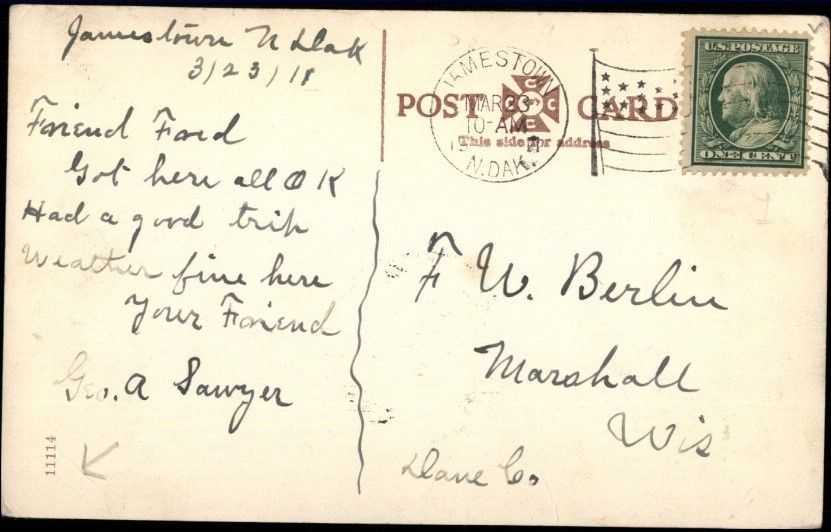 Jamestown N Dak
3/23/11
Friend Fred
Got here all O K
Had a good trip
Weather fine here
Your Friend
Geo. A Sawyer
11114
POST CARD
This side for address
JAMESTOWN
MAR 23
10-AM
N.DAK.
U.S. POSTAGE
ONE CENT
F W. Berlin
Marshall
Wis
Dane Co.